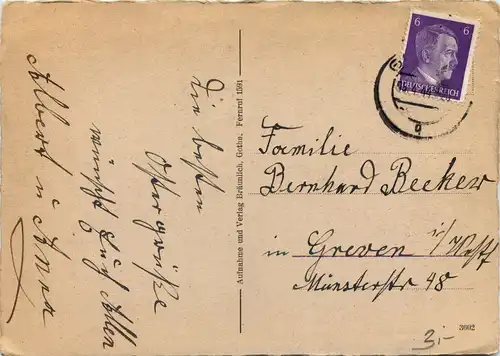 Die besten
Ostergrüße
wünscht Euch Allen
Albert u Anna
Aufnahme und Verlag Bräunlich, Gotha. Fernruf 1591
6 6
DEUTSCHES REICH
Familie
Bernhard Becker
in Greven i/Westf
Münsterstr 48
3602
3.-